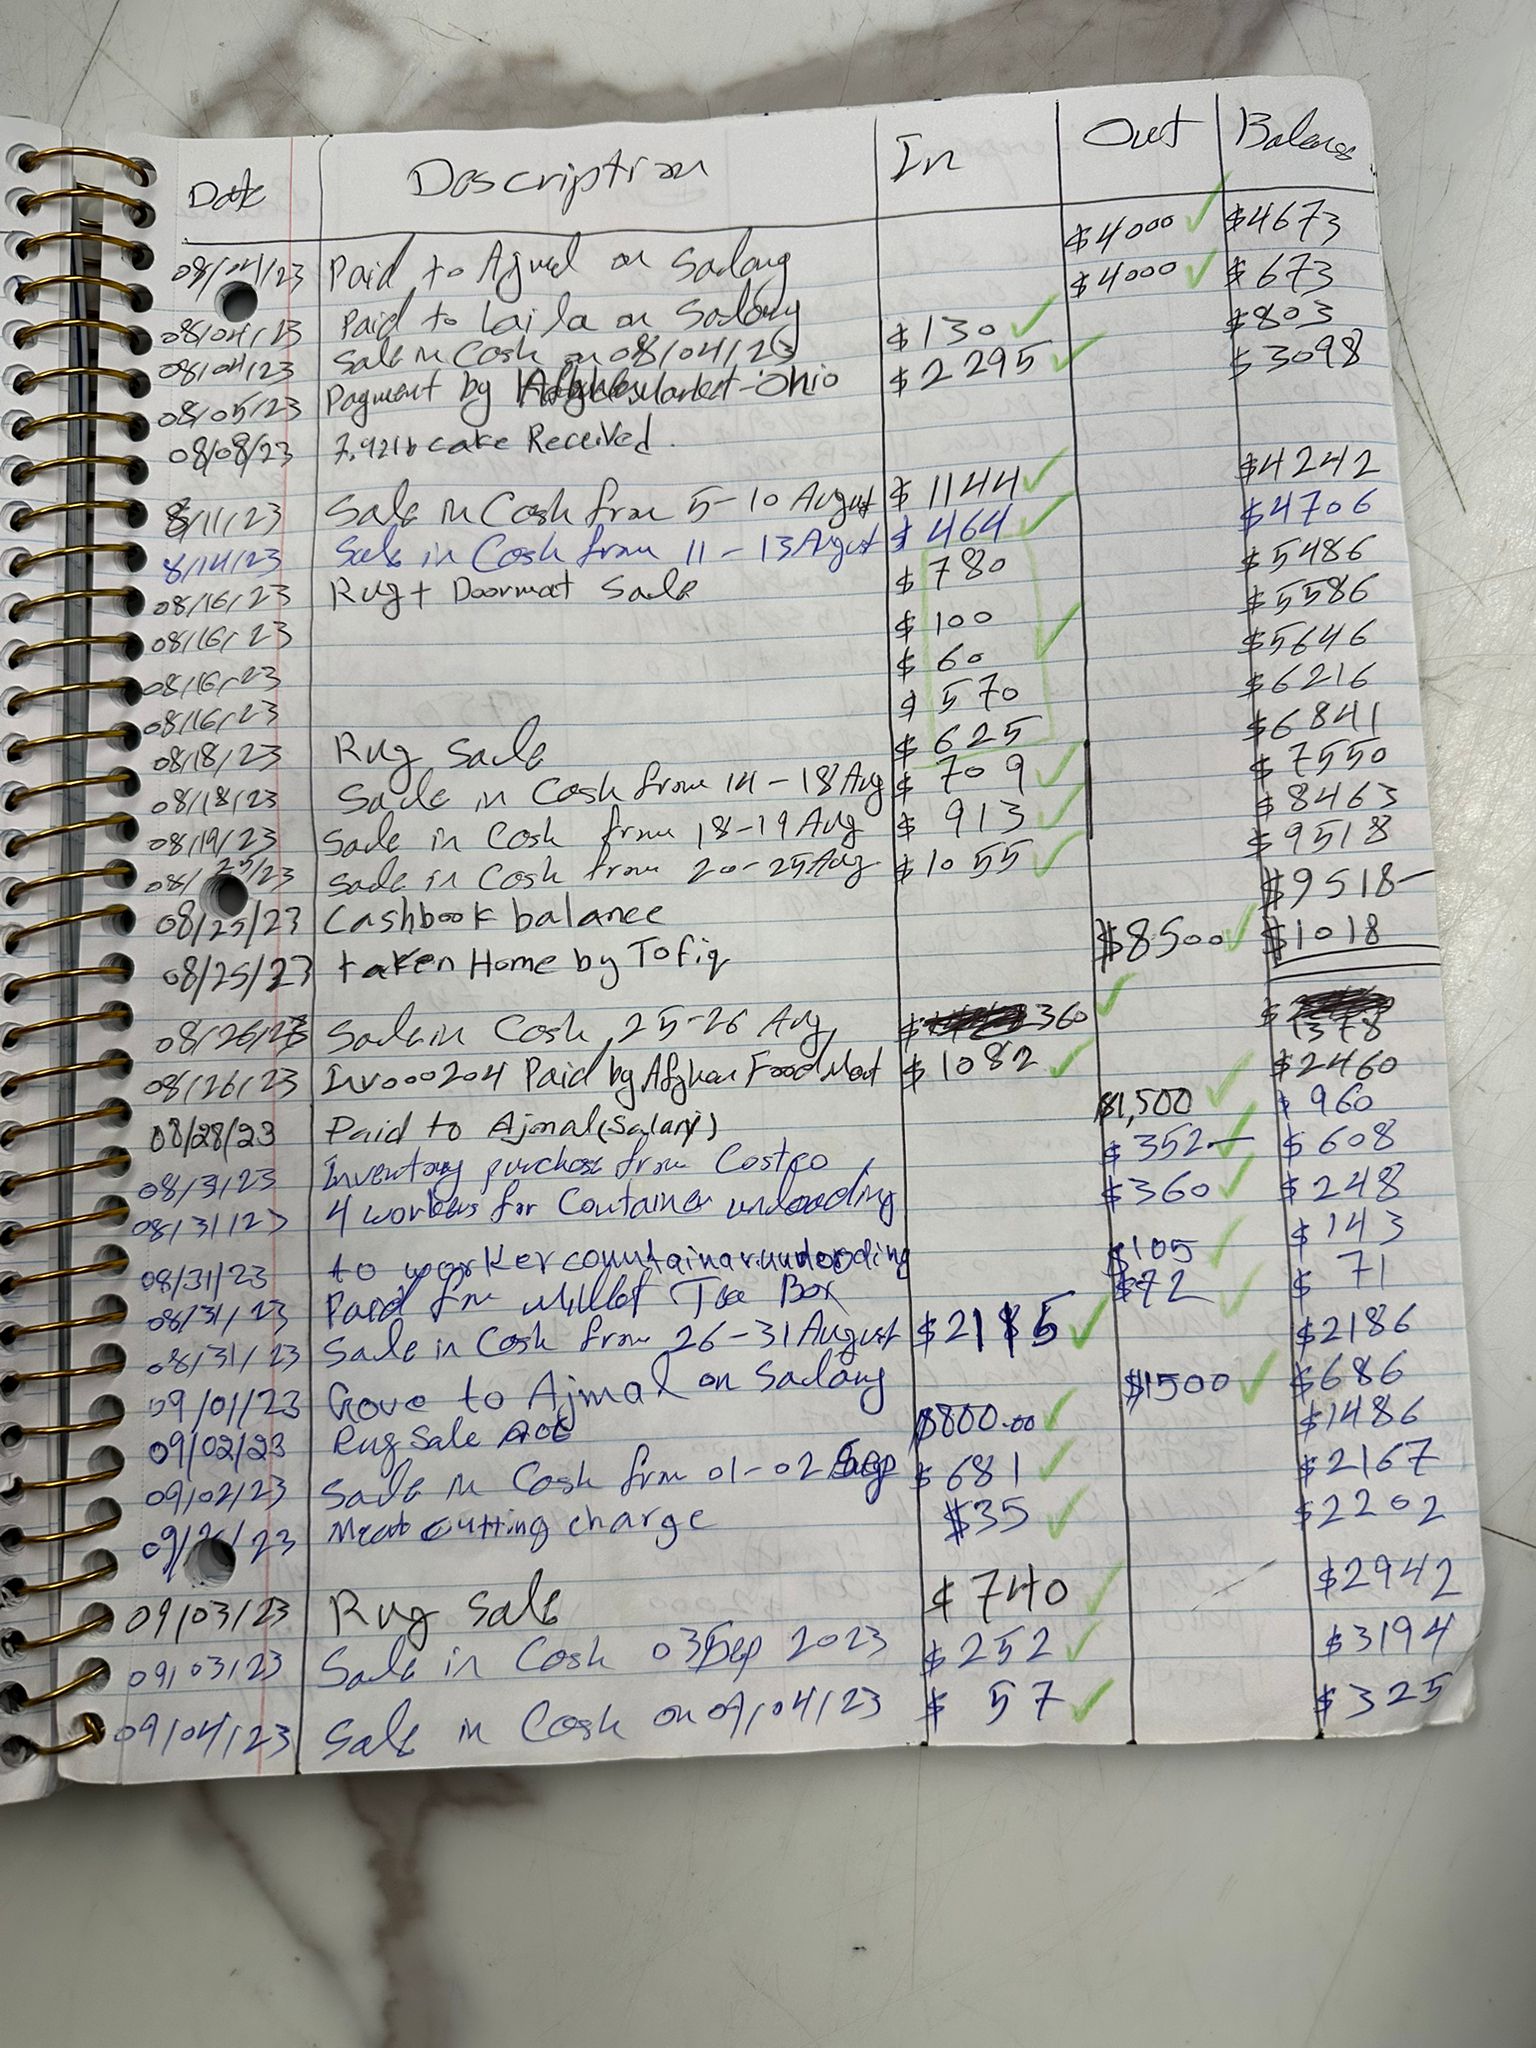 Date Description In Out Balance
08/04/23 Paid to Ajmal on Salary $4000 ✓ $4673
08/04/23 Paid to Laila on Salary $4000 ✓ $673
08/04/23 Sale in Cash on 08/04/23 $130 ✓ $803
08/05/23 Payment by Market-Ohio $2295 ✓ $3098
08/08/23 7.92lb cake Received.
8/11/23 Sale in Cash from 5-10 August $1144 ✓ $4242
8/14/23 Sale in Cash from 11-13 August $464 ✓ $4706
08/16/23 Rug + Doormat Sale $780 $5486
08/16/23 $100 $5586
08/16/23 $60 ✓ $5646
08/16/23 $570 $6216
08/18/23 Rug Sale $625 $6841
08/18/23 Sale in Cash from 14-18 Aug $709 ✓ $7550
08/19/23 Sale in Cash from 18-19 Aug $913 ✓ $8463
08/25/23 Sale in Cash from 20-25 Aug $1055 ✓ $9518
08/25/23 Cashbook balance $9518-
08/25/23 taken Home by Tofiq $8500 ✓ $1018
08/26/23 Sale in Cash 25-26 Aug, $360 ✓ $1378
08/26/23 Inv000204 Paid by Afghan Food Mart $1082 ✓ $2460
08/28/23 Paid to Ajmal (Salary) $1,500 ✓ $960
08/31/23 Inventory purchase from Costco $352- ✓ $608
08/31/23 4 workers for Container unloading $360 ✓ $248
08/31/23 to worker countainar undoding $105 ✓ $143
08/31/23 Paid for Tea Box $72 ✓ $71
08/31/23 Sale in Cash from 26-31 August $2115 ✓ $2186
09/01/23 Gave to Ajmal on Salary $1500 ✓ $686
09/02/23 Rug Sale $800.00 ✓ $1486
09/02/23 Sale in Cash from 01-02 Sep $681 ✓ $2167
09/ /23 Meat cutting charge $35 ✓ $2202
09/03/23 Rug Sale $740 ✓ $2942
09/03/23 Sale in Cash 03 Sep 2023 $252 ✓ $3194
09/04/23 Sale in Cash on 09/04/23 $57 ✓ $325